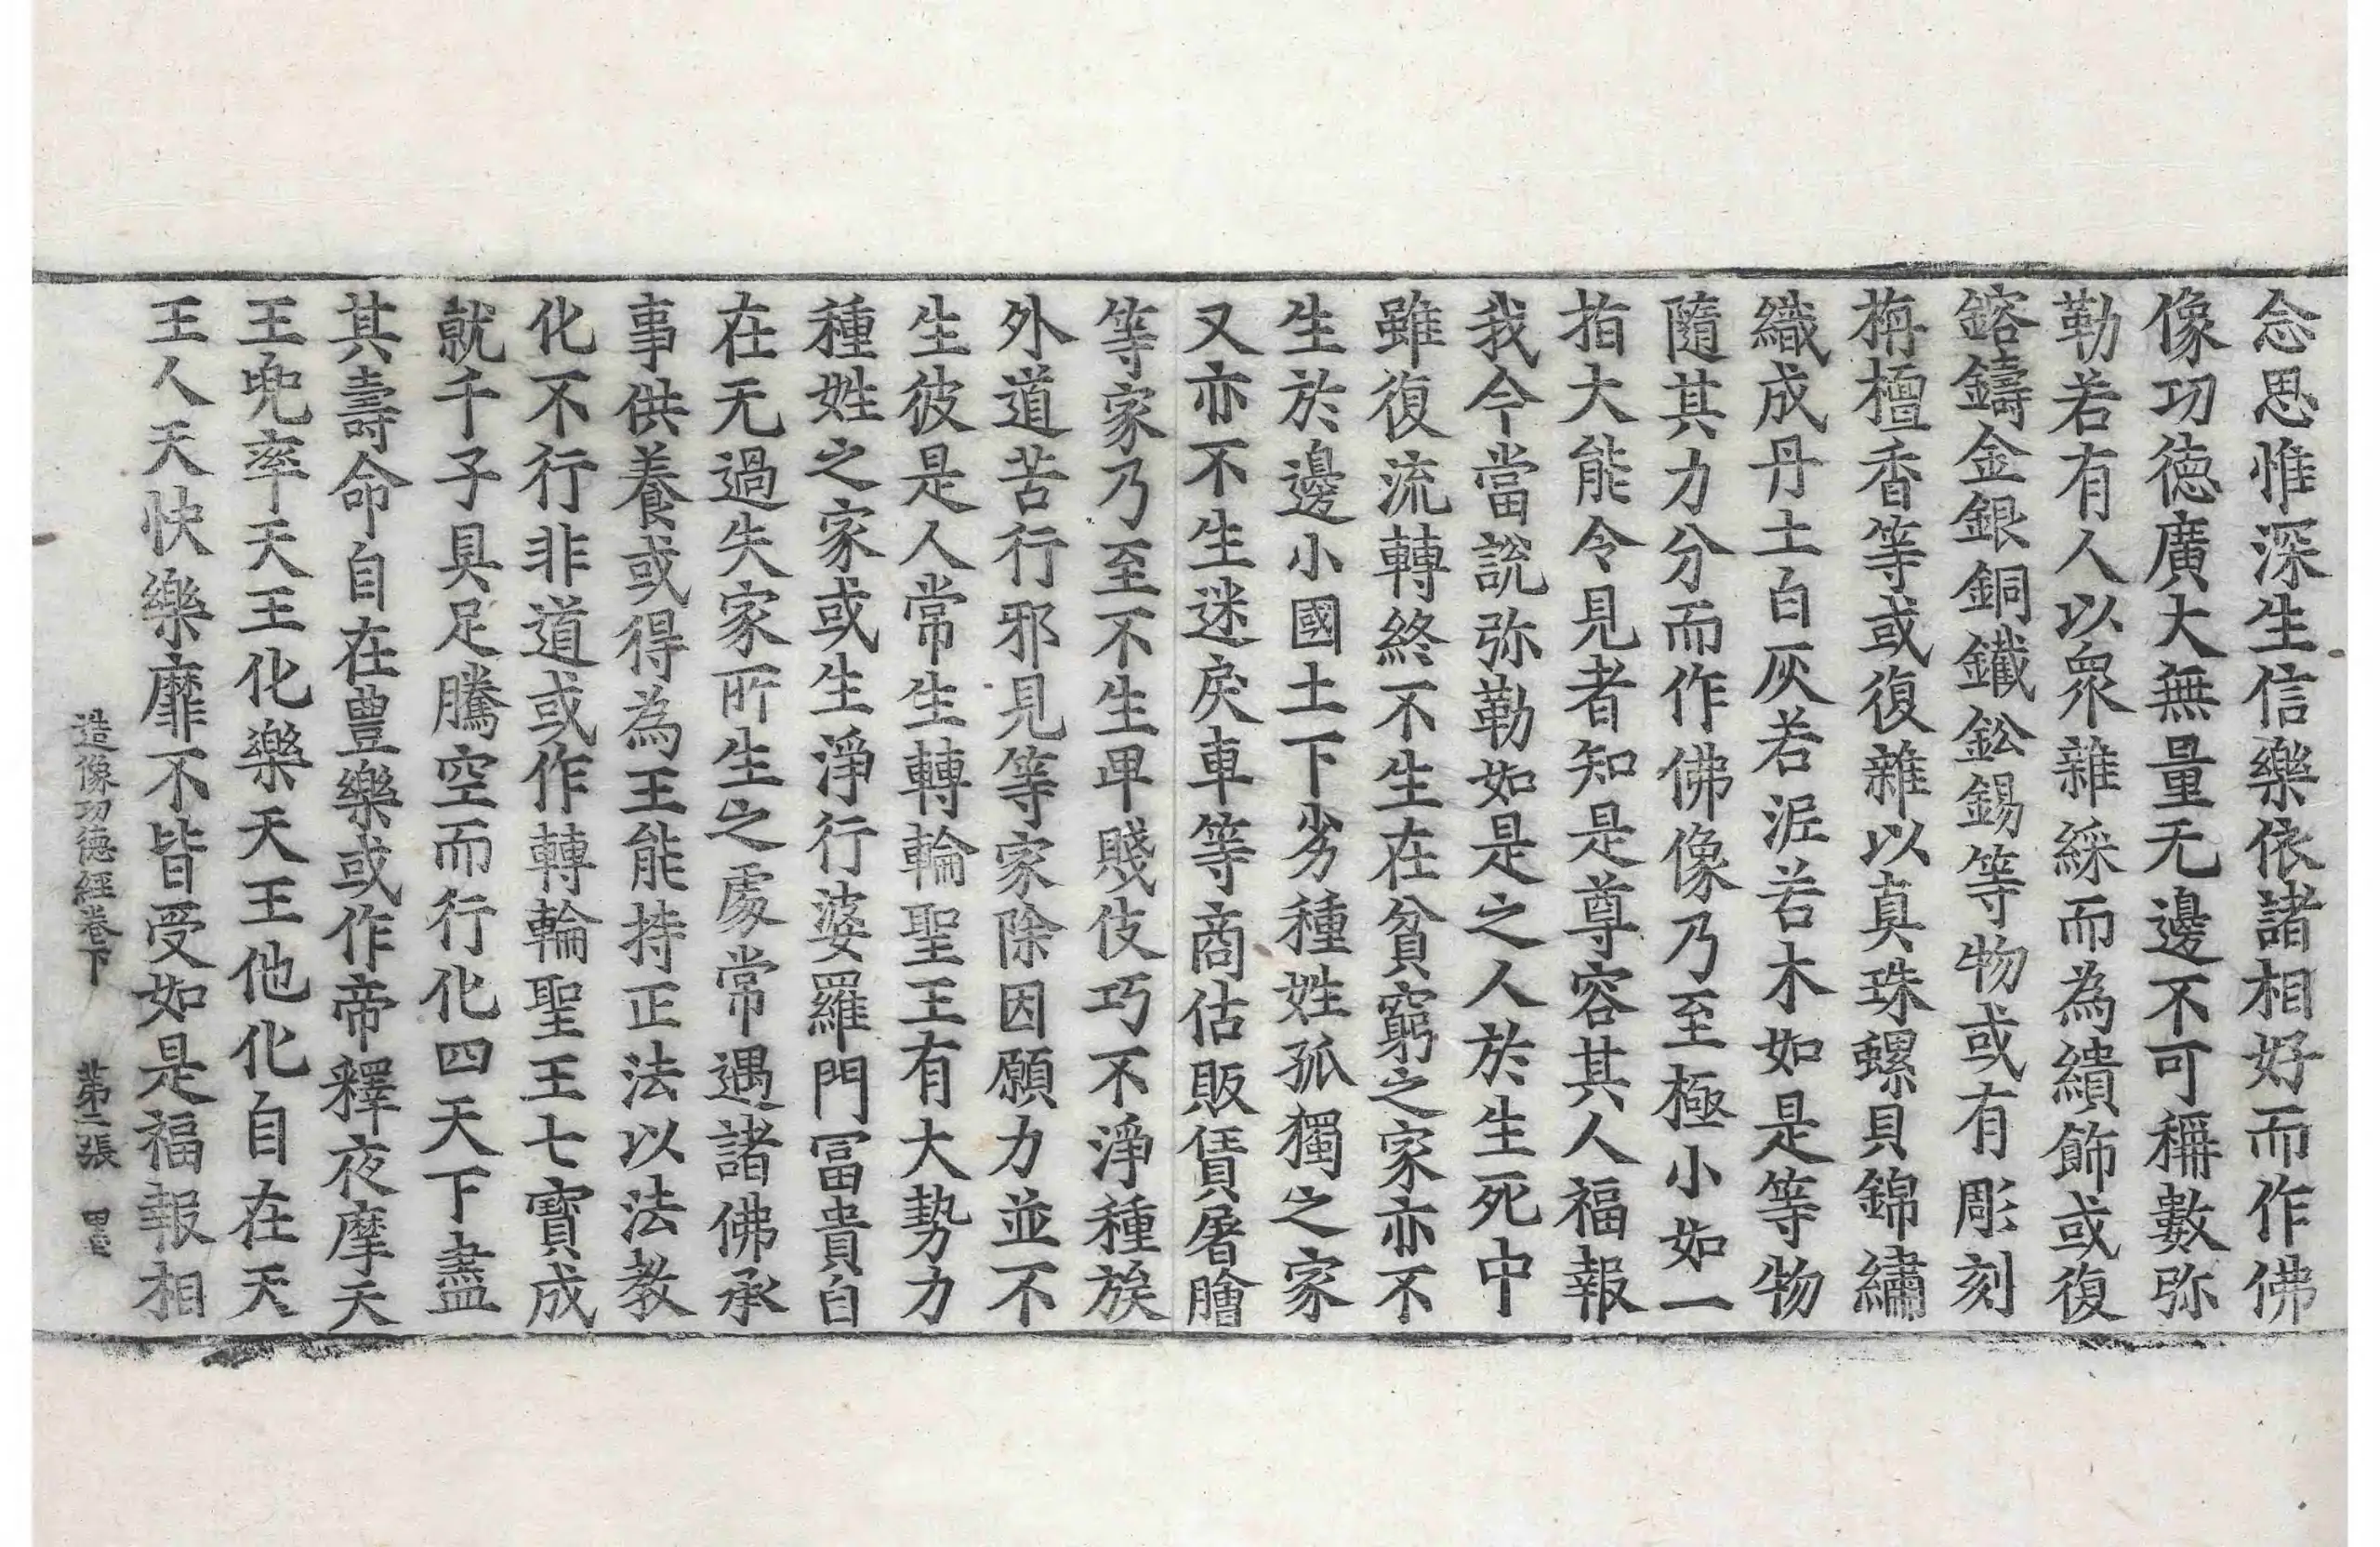 念思惟深生信樂依諸相好而作佛
像功徳廣大無量无邊不可稱數弥
勒若有人以衆雜綵而為繢飾或復
鎔鑄金銀銅鐵鈆錫等物或有彫刻
栴檀香等或復雜以真珠螺貝錦繡
織成丹土白灰若泥若木如是等物
隨其力分而作佛像乃至極小如一
指大能令見者知是尊容其人福報
我今當說弥勒如是之人於生死中
雖復流轉終不生在貧窮之家亦不
生於邊小國土下劣種姓孤獨之家
又亦不生迷戾車等商估販賃屠膾
等家乃至不生卑賤伎巧不淨種族
外道苦行邪見等家除因願力並不
生彼是人常生轉輪聖王有大勢力
種姓之家或生淨行婆羅門冨貴自
在无過失家所生之處常遇諸佛承
事供養或得為王能持正法以法教
化不行非道或作轉輪聖王七寶成
就千子具足騰空而行化四天下盡
其壽命自在豊樂或作帝釋夜摩天
王兜率天王化樂天王他化自在天
王人天快樂靡不皆受如是福報相
造像功德經卷下 第二張